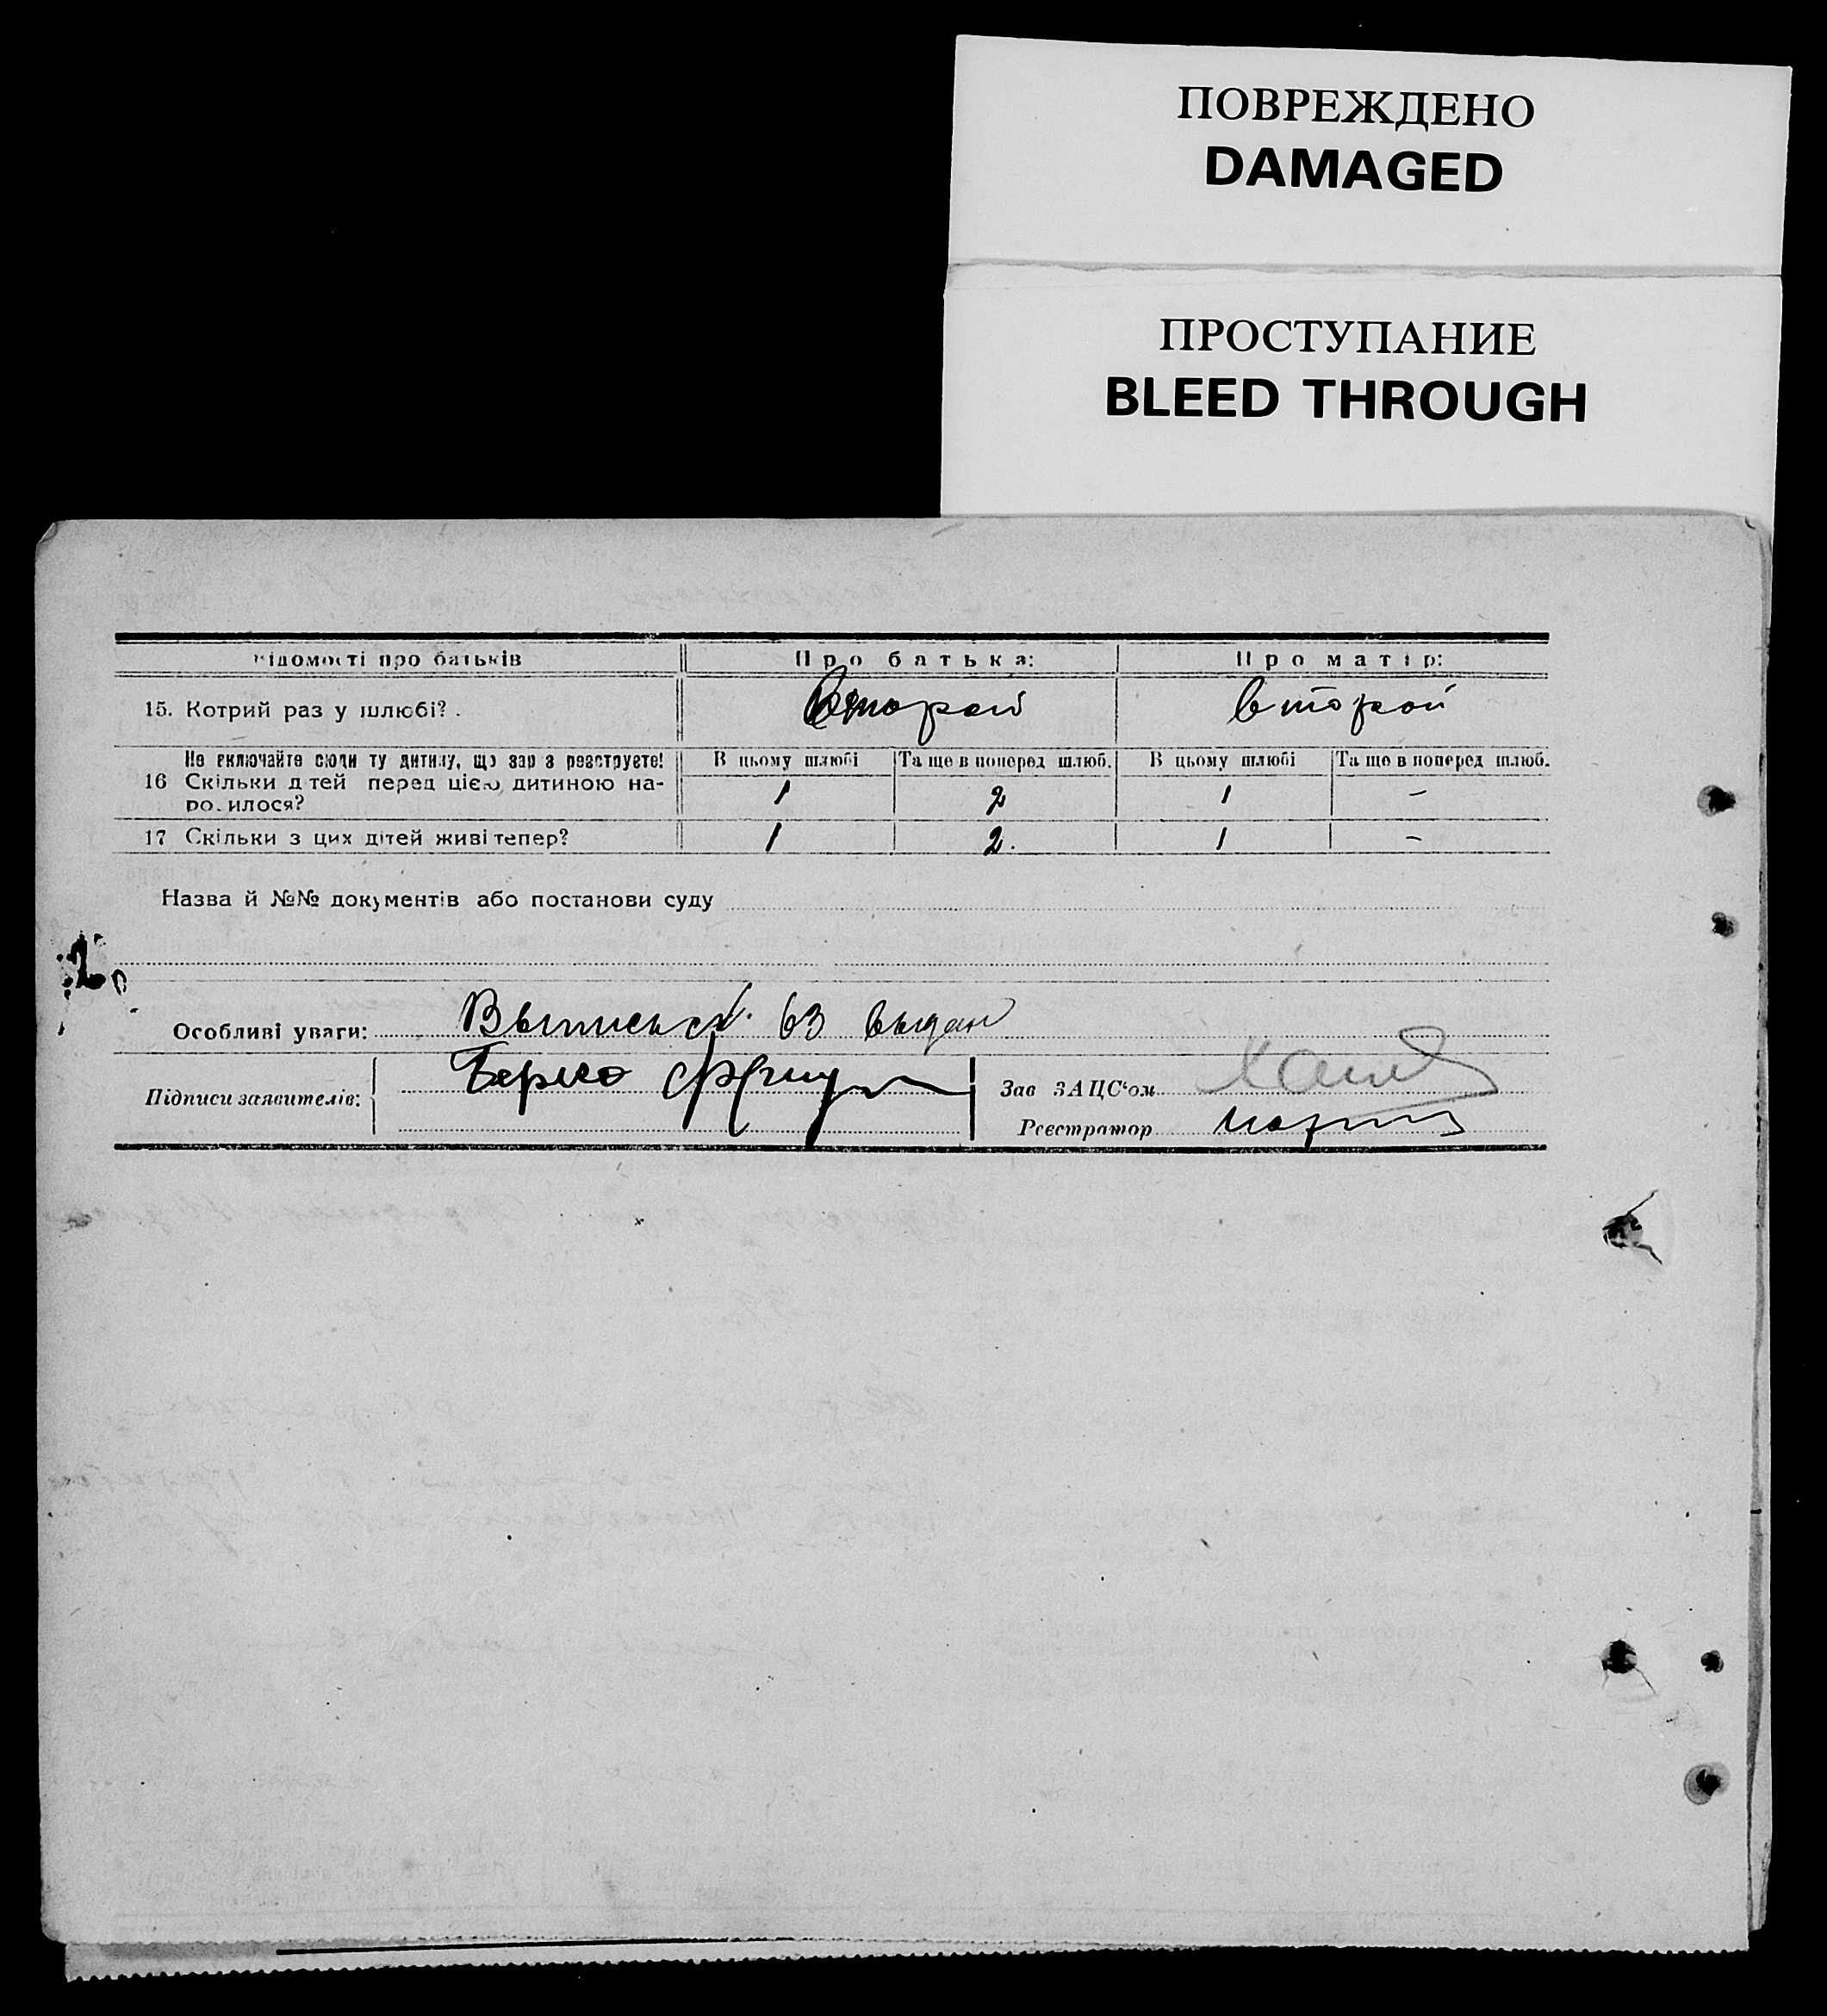 ПОВРЕЖДЕНО
DAMAGED
ПРОСТУПАНИЕ
BLEED THROUGH
відомості про батьків Про батька: Про матір:
15. Котрий раз у шлюбі? . Второй второй
Не включайте сюди ту дитину, що зараз реєструєте! В цьому шлюбі Та ще в поперед шлюб. В цьому шлюбі Та ще в поперед шлюб.
16 Скільки дітей перед цією дитиною на-
родилося? 1 2 1 –
17 Скільки з цих дітей живі тепер? 1 2. 1 –
Назва й №№ документів або постанови суду
Особливі уваги: 63 выдан
Підписи заявителів:
Зав ЗАЦС'ом
Реєстратор